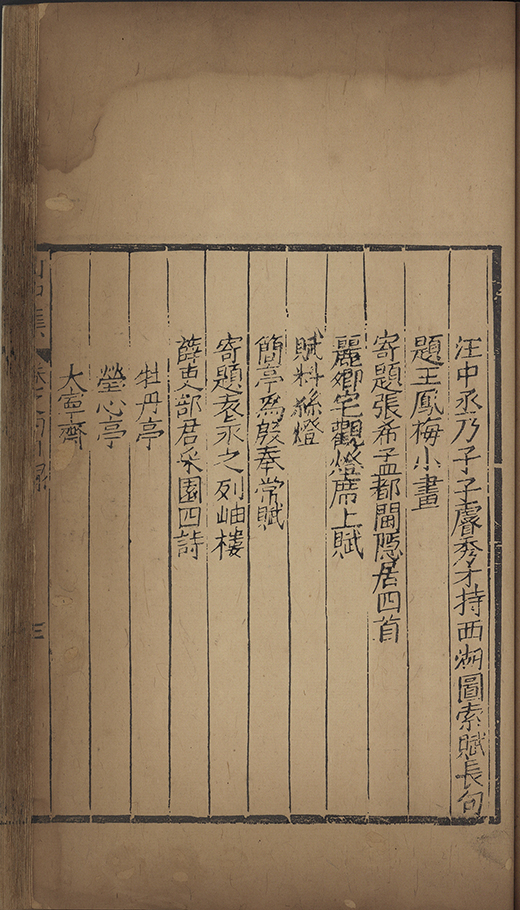 汪中丞乃子子睿秀才持西湖圖索賦長句
題王鳳梅小畫
寄題張希孟都閫隱居四首
麗卿宅觀燈席上賦
賦料絲燈
簡亭為殷奉常賦
寄題袁永之列岫樓
薛吏部君采園四詩
牡丹亭
瑩心亭
大寧齋
三